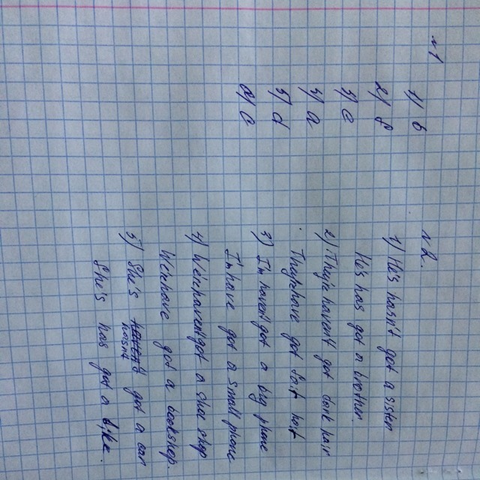 N1
1) b
2) f
3) e
4) a
5) d
6) c
N2.
1) He's hasn't got a sister
He's has got a brother
2) They're haven't got dark hair
They're have got fair hair
3) I'm haven't got a big phone
I'm have got a small phone
4) We're haven't got a shoe shop
We're have got a bookshop.
5) She's hasn't got a car
She's has got a bike.